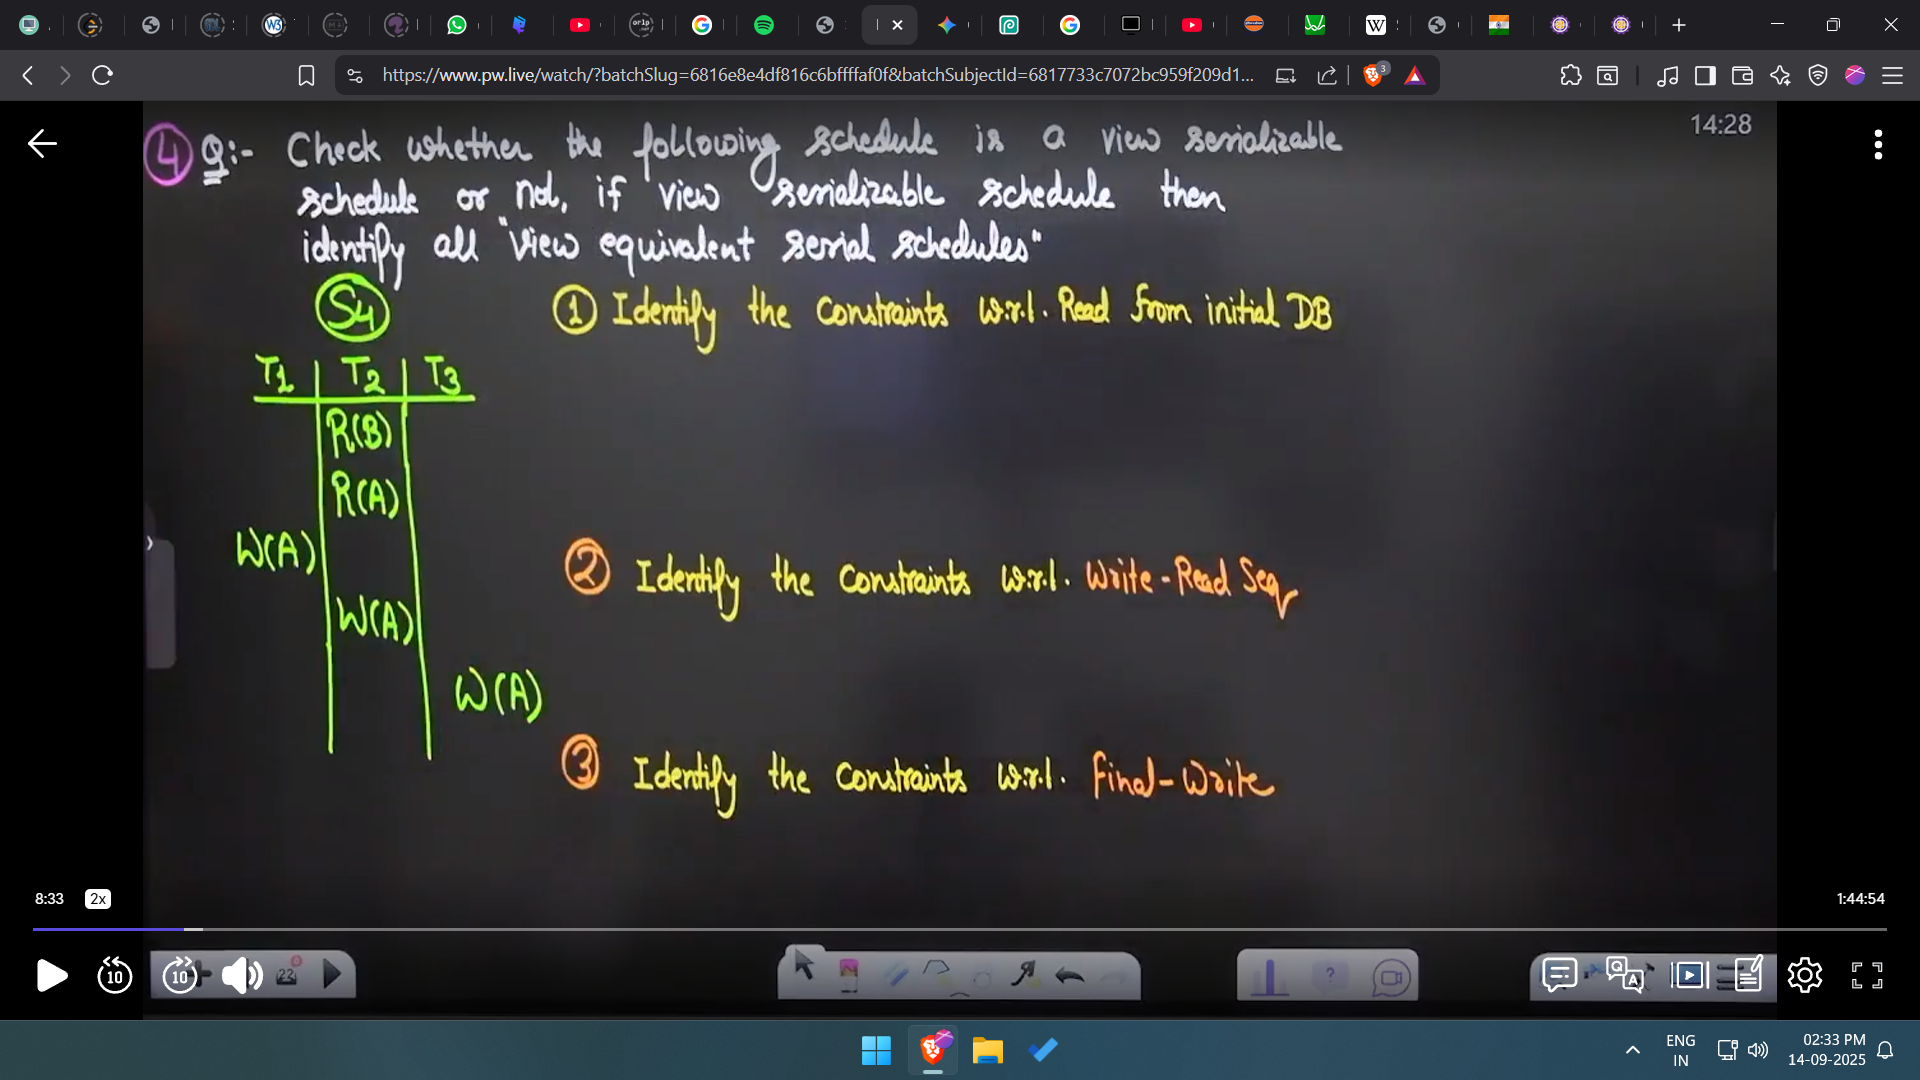 https://www.pw.live/watch/?batchSlug=6816e8e4df816c6bffffaf0f&batchSubjectId=6817733c7072bc959f209d1...
3
14:28
④ Q:- Check whether the following schedule is a view serializable
schedule or not, if view serializable schedule then
identify all "view equivalent serial schedules"
S4
① Identify the Constraints w.r.t. Read from initial DB
T1 T2 T3
R(B)
R(A)
W(A)
② Identify the Constraints w.r.t. Write-Read Seq
W(A)
W(A)
③ Identify the Constraints w.r.t. Final-Write
8:33 2x 1:44:54
10 10 22
ENG
IN
02:33 PM
14-09-2025